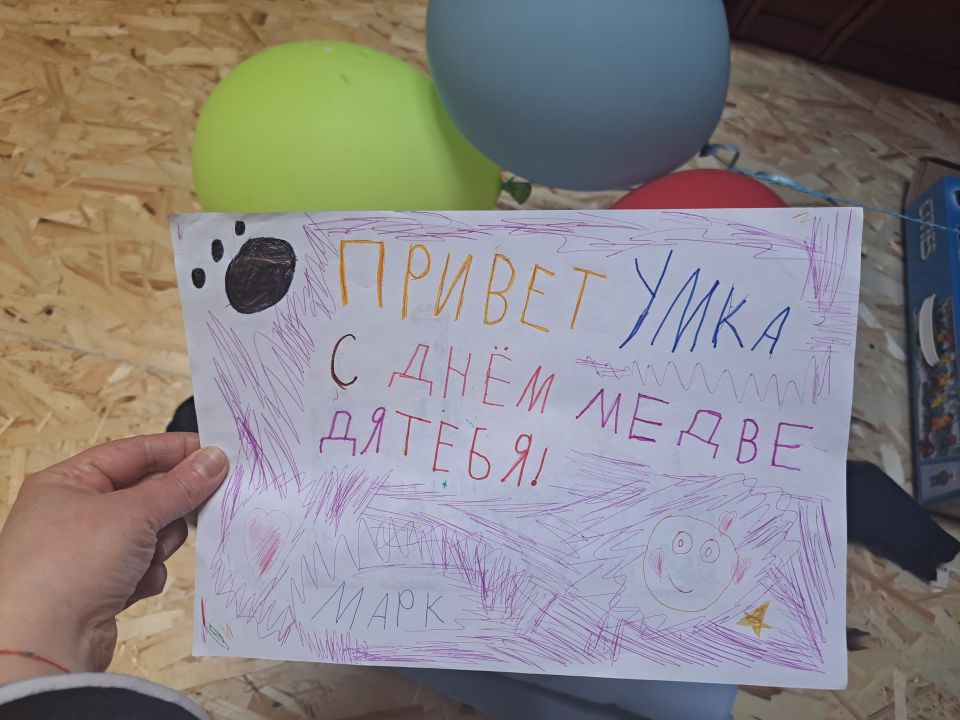 ПРИВЕТ УМКА
С ДНЁМ МЕДВЕ
ДЯ ТЕБЯ!
МАРК